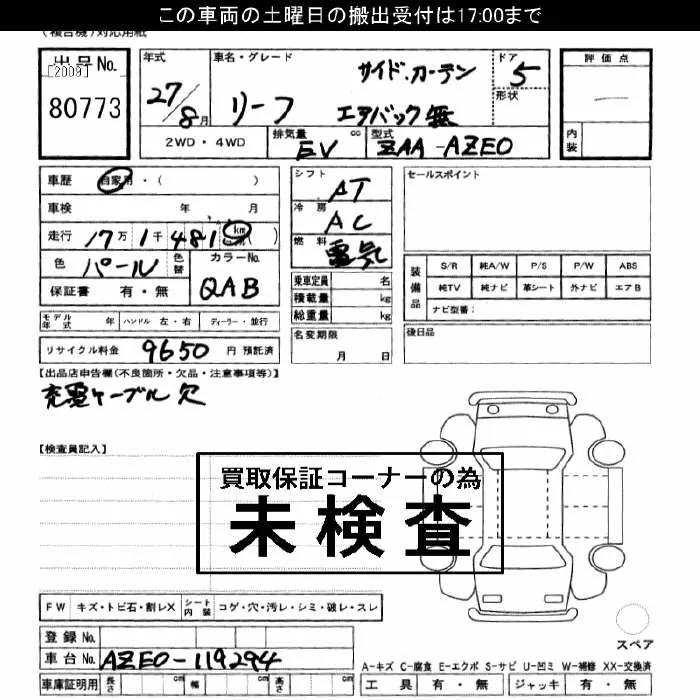 この車両の土曜日の搬出受付は17:00まで
(複合機)対応用紙
出品No. [2009] 80773
年式 27/8月
車名・グレード リーフ サイド.カーテン エアバック無
ドア 5
形状
評価点 —
内装
2WD・4WD
排気量 cc EV
型式 ZAA-AZE0
車歴 自家用・( )
車検 年 月
走行 17万1千481km( )
色 パール 色替
カラーNo. QAB
保証書 有・無
シフト AT
冷房 AC
燃料 電気
乗車定員 名
積載量 kg
総重量 kg
セールスポイント
装備品 S/R 純A/W P/S P/W ABS
純TV 純ナビ 革シート 外ナビ エアB
ナビ型番:
モデル年式 年 ハンドル 左・右 ディーラー・並行
名変期限 月 日
後日品
リサイクル料金 9650 円 預託済
【出品店申告欄(不良箇所・欠品・注意事項等)】
充電ケーブル欠
【検査員記入】
買取保証コーナーの為
未検査
FW キズ・トビ石・割レX シート内装 コゲ・穴・汚レ・シミ・破レ・スレ
登録No.
車台No. AZE0-119294
スペア
A-キズ C-腐食 E-エクボ S-サビ U-凹ミ W-補修 XX-交換済
車庫証明用 長さ cm 幅 cm 高さ cm
工具 有・無 ジャッキ 有・無